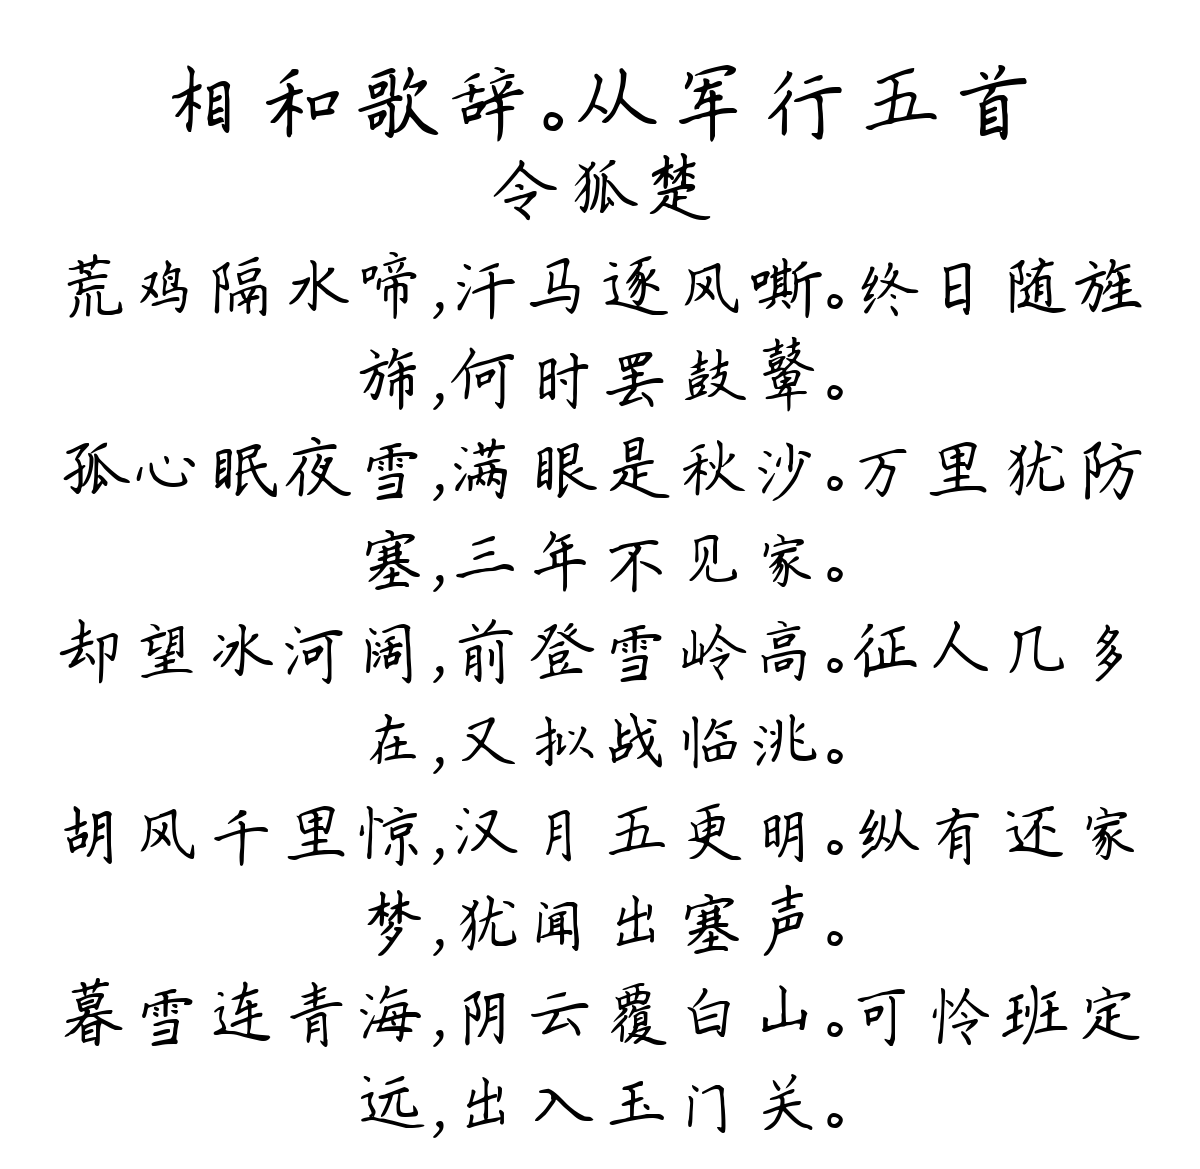 相和歌辞。从军行五首
令狐楚
荒鸡隔水啼,汗马逐风嘶。终日随旌
旆,何时罢鼓鼙。
孤心眠夜雪,满眼是秋沙。万里犹防
塞,三年不见家。
却望冰河阔,前登雪岭高。征人几多
在,又拟战临洮。
胡风千里惊,汉月五更明。纵有还家
梦,犹闻出塞声。
暮雪连青海,阴云覆白山。可怜班定
远,出入玉门关。